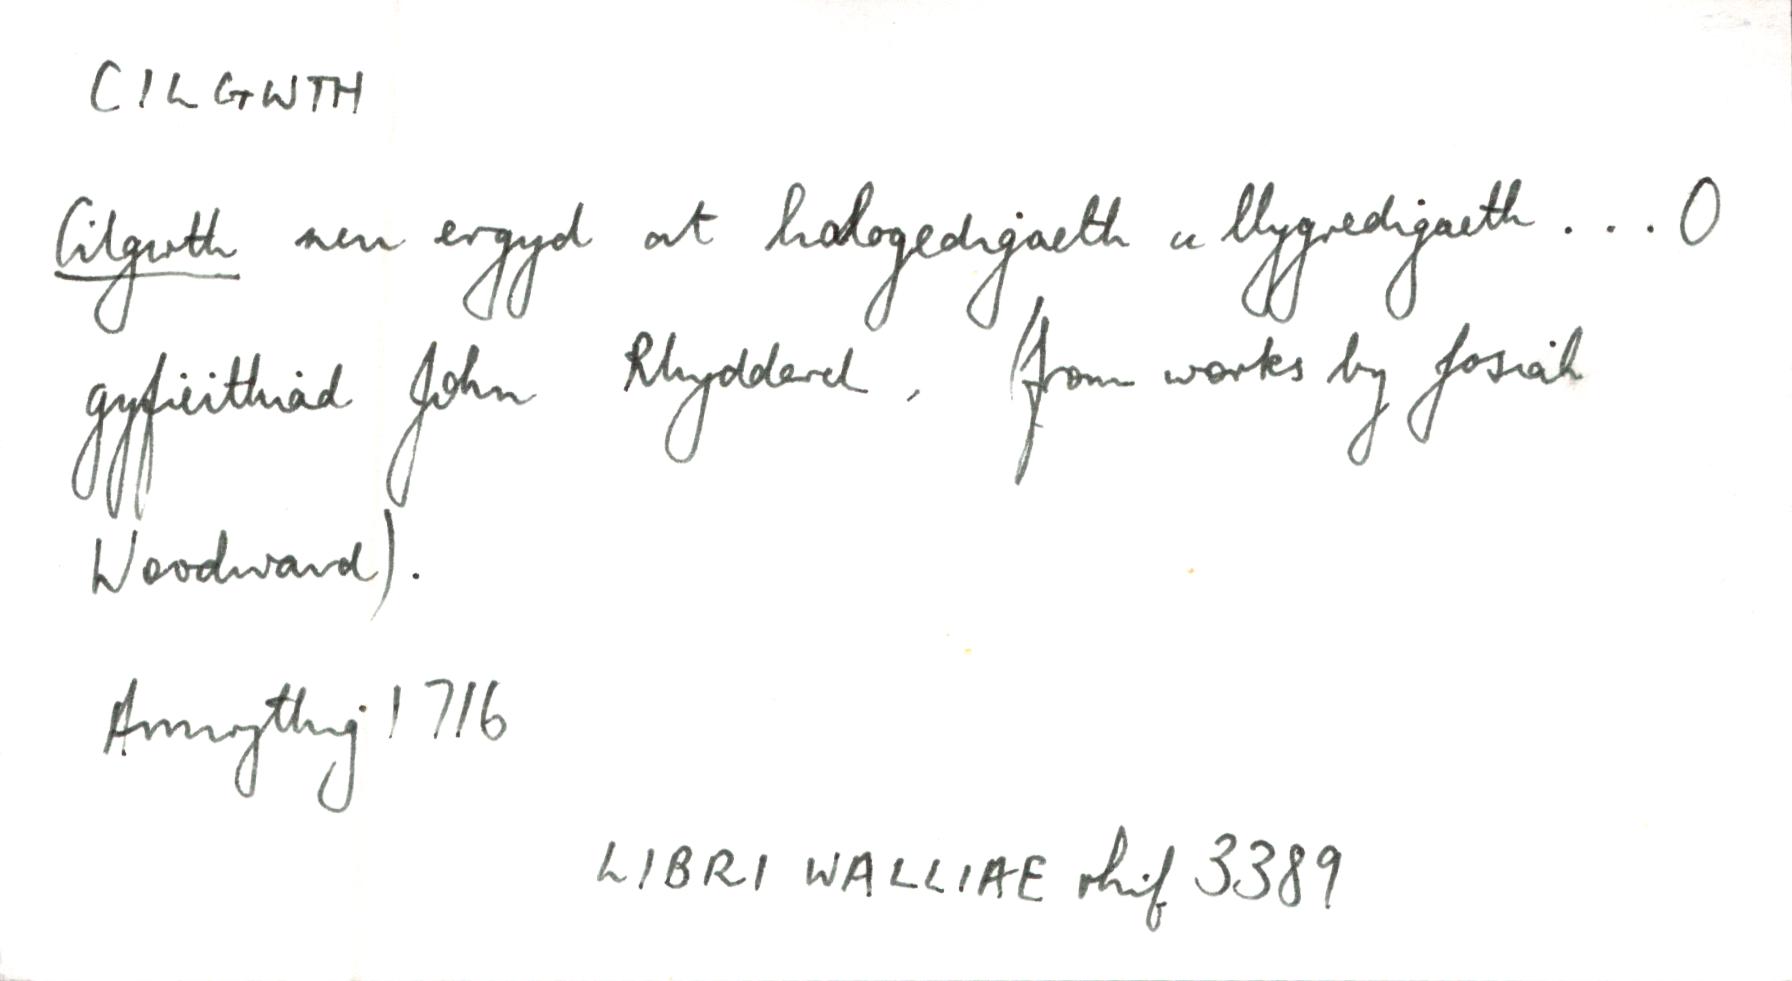 CILGWTH
Cilgwth neu ergyd at halogedigaeth a llygredigaeth.... O
gyfieithiad John Rhydderch. (from works by Josiah
Woodward).
Amwythig 1716
LIBRI WALLIAE rhif 3389